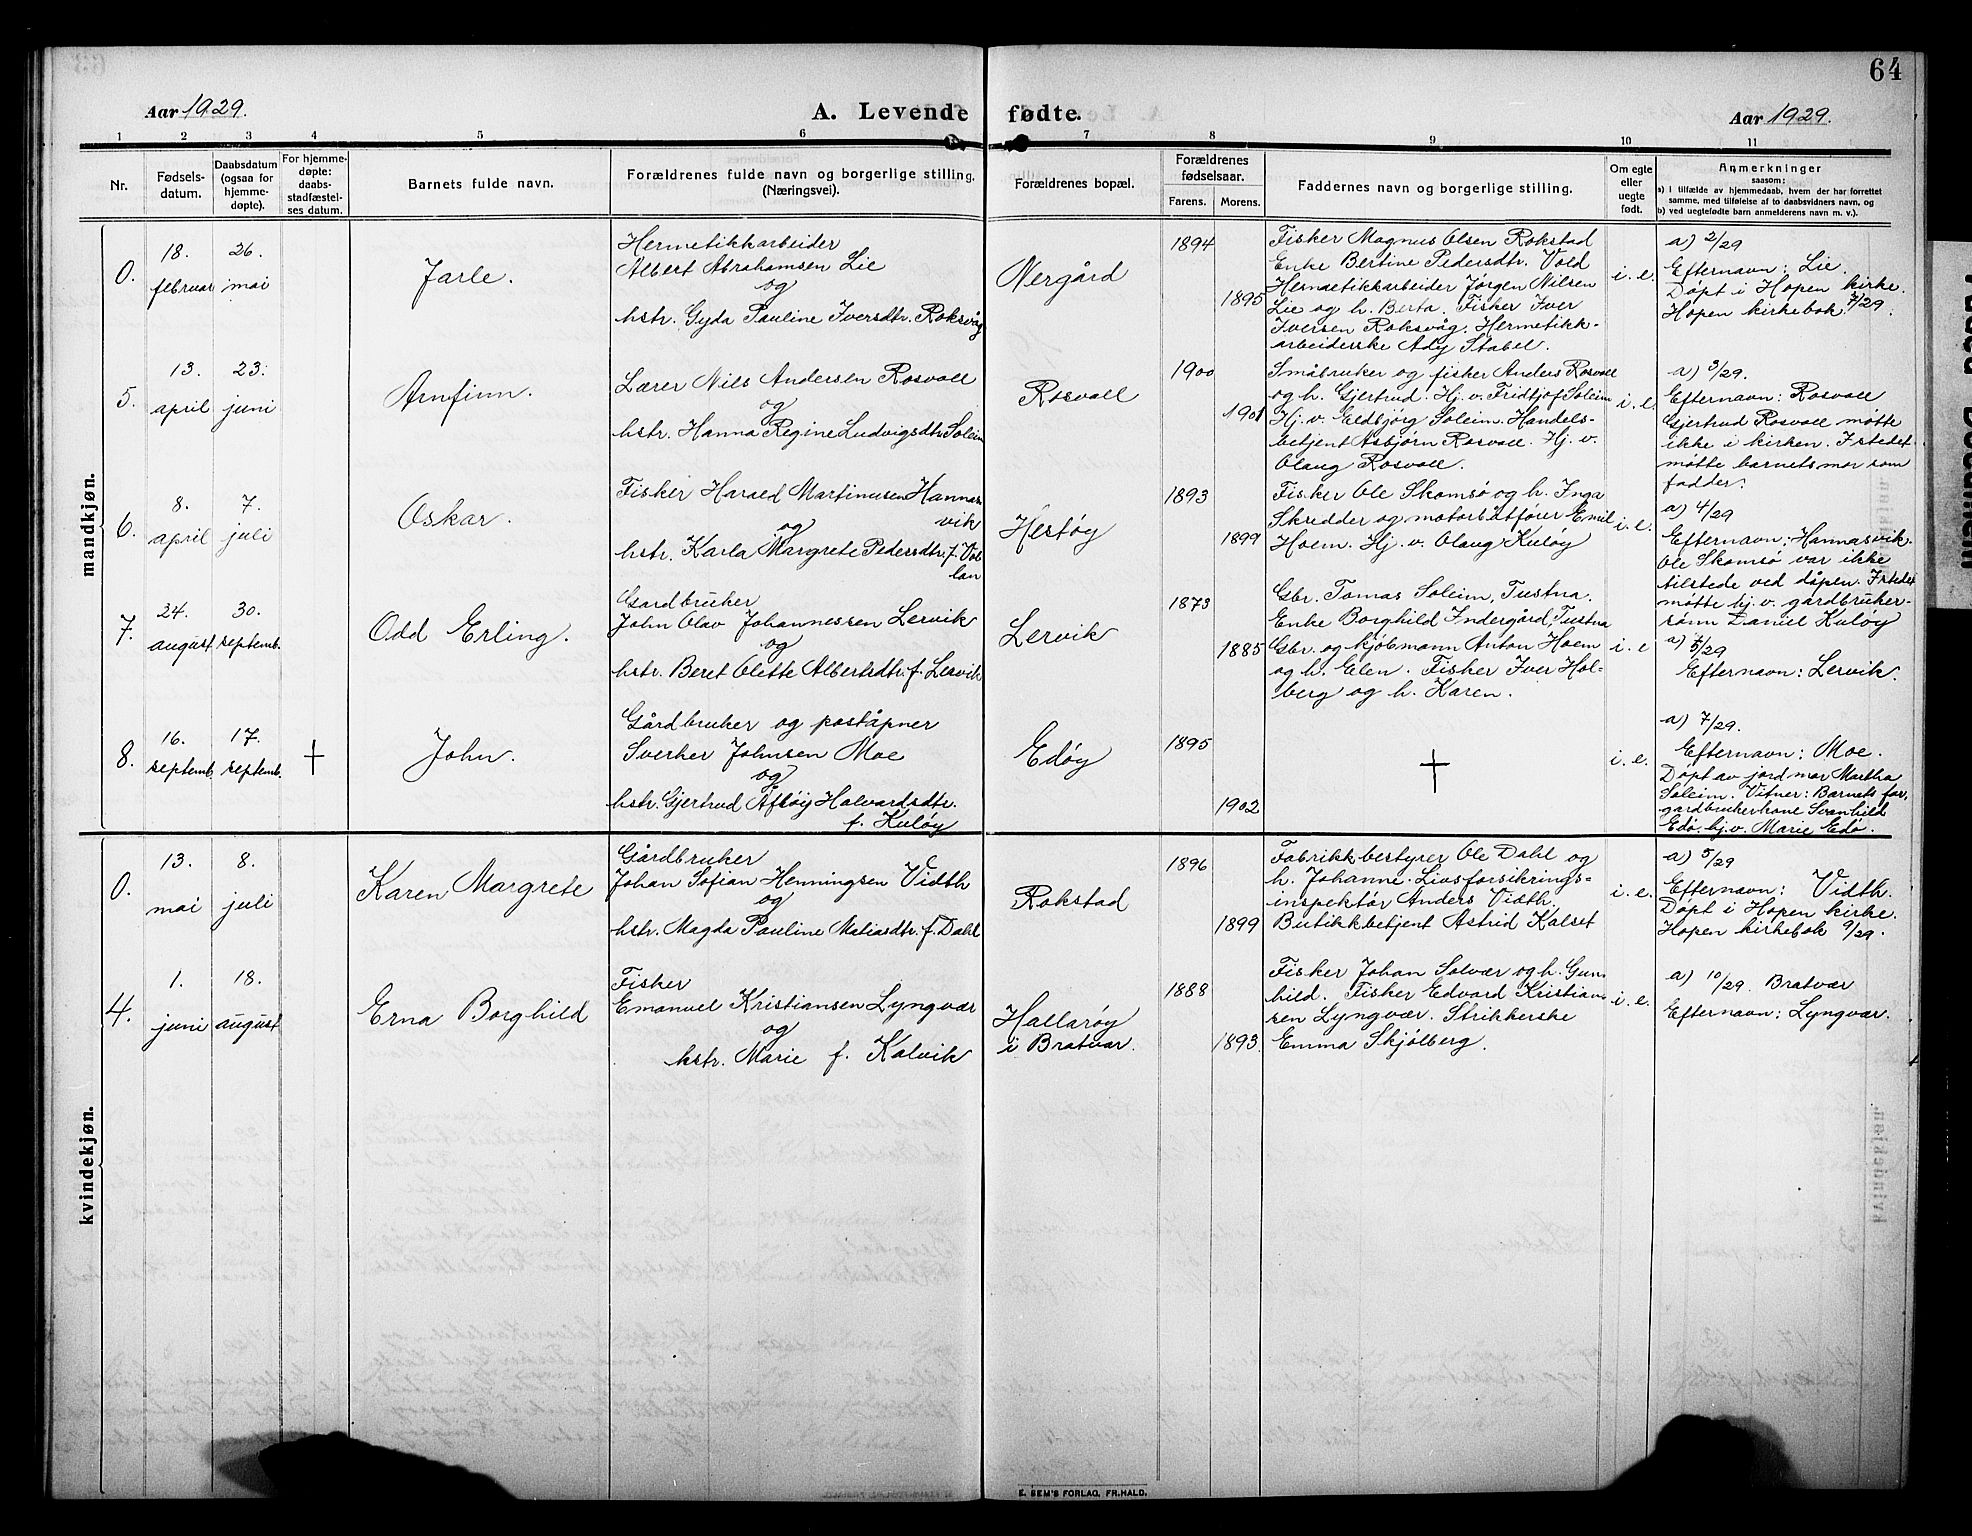 64
Aar 1929.
A. Levende fødte.
Aar 1929.
1 2 3 4 5 6 7 8 9 10 11
Nr.
Fødsels-
datum.
Daabsdatum
(ogsaa for
hjemme-
døpte).
For hjemme-
døpte:
daabs-
stadfæstel-
ses datum.
Barnets fulde navn.
Forældrenes fulde navn og borgerlige stilling.
(Næringsvei).
Forældrenes bopæl.
Forældrenes
fødselsaar.
Farens. Morens.
Faddernes navn og borgerlige stilling.
Om egte
eller
uegte
født.
Anmerkninger
saasom:
a) i tilfælde av hjemmedaab, hvem der har forrettet
samme, med tilføielse af to daabsvidners navn, og
b) ved uegtefødte barn anmelderens navn m. v.).
mandkjøn.
0.
18.
februar
26.
mai
Jarle.
Hermetikkarbeider
Albert Abrahamsen Lie
og
hstr. Gyda Pauline Iversdtr. Roksvåg
Nergård
1894
1895
Fisker Magnus Olsen Rokstad
Enke Bertine Pedersdtr. Vold
Hermetikkarbeider Jørgen Nilsen
Lie og h. Berta. Fisker Iver
Iversen Roksvåg. Hermetikk-
arbeiderske Ady Stabel.
i. e.
a) 2/29
Efternavn: Lie.
Døpt i Hopen kirke.
Hopen kirkebok 7/29.
5.
13.
april
23.
juni
Arnfinn.
Lærer Nils Andersen Rosvoll
og
hstr. Hanna Regine Ludvigsdtr. Soleim
Rosvoll
1900
1901
Småbruker og fisker Anders Rosvoll
og h. Gjertrud. Hj. v. Fridtjof Soleim
Hj. v. Eldbjørg Soleim. Handels-
betjent Asbjørn Rosvoll. Hj. v.
Olaug Rosvoll.
i. e.
a) 3/29.
Efternavn: Rosvoll
Gjertrud Rosvoll møtte
ikke i kirken. Istedet
møtte barnets mor som
fadder.
6.
8.
april
7.
juli
Oskar.
Fisker Harald Martinusen Hannas
vik
og
hstr. Karla Margrete Pedersdtr. f. Vos
lan
Hestøy
1893
1899
Fisker Ole Skomsø og h. Inga
Skredder og motorbåtfører Emil
Hoem. Hj. v. Olaug Kuløy
i. e.
a) 4/29
Efternavn: Hannasvik.
Ole Skomsø var ikke
tilstede ved dåpen. Istedet
møtte hj. v. gårdbruker-
sønn Daniel Kuløy
7.
24.
august
30.
septemb.
Odd Erling.
Gardbruker
John Olav Johannessen Lervik
og
hstr. Beret Olette Albertsdtr. f. Lervik
Lervik
1873
1885
Gbr. Tomas Soleim, Tustna.
Enke Borghild Indergård, Tustna
Gbr. og kjøbmann Anton Hoem
og h. Elen. Fisker Iver Hol-
berg og h. Karen.
i. e
a) 5/29
Efternavn: Lervik.
8.
16.
septemb.
17.
septemb.
†
John.
Gårdbruker og poståpner
Sverker Johnsen Moe
og
hstr. Gjertrud Åfløy Halvardsdtr.
f. Kuløy
Edøy
1895
1902
†
i. e.
a) 7/29.
Efternavn: Moe.
Døpt av jordmor Martha
Soleim. Vitner: Barnets far,
gårdbrukerkone Svanhild
Edø, hj. v. Marie Edø.
kvindekjøn.
0.
13.
mai
8.
juli
Karen Margrete
Gårdbruker
Johan Sofian Henningsen Vidth
og
hstr. Magda Pauline Matiasdtr. f. Dahl
Rokstad
1896
1899
Fabrikkbestyrer Ole Dahl og
h. Johanne. Livsforsikrings-
inspektør Anders Vidth.
Butikkbetjent Astrid Kalset
i. e.
a) 5/29
Efternavn: Vidth.
Døpt i Hopen kirke.
Hopen kirkebok 9/29.
4.
1.
juni
18.
august
Erna Borghild
Fisker
Emanuel Kristiansen Lyngvær
og
hstr. Marie f. Kalvik
Hallarøy
i Bratvær.
1888
1893.
Fisker Johan Solvær og h. Gun-
hild. Fisker Edvard Kristian-
sen Lyngvær. Strikkerske
Emma Skjølberg.
i. e.
a) 10/29. Bratvær
Efternavn: Lyngvær.
E. SEM'S FORLAG, FR.HALD.